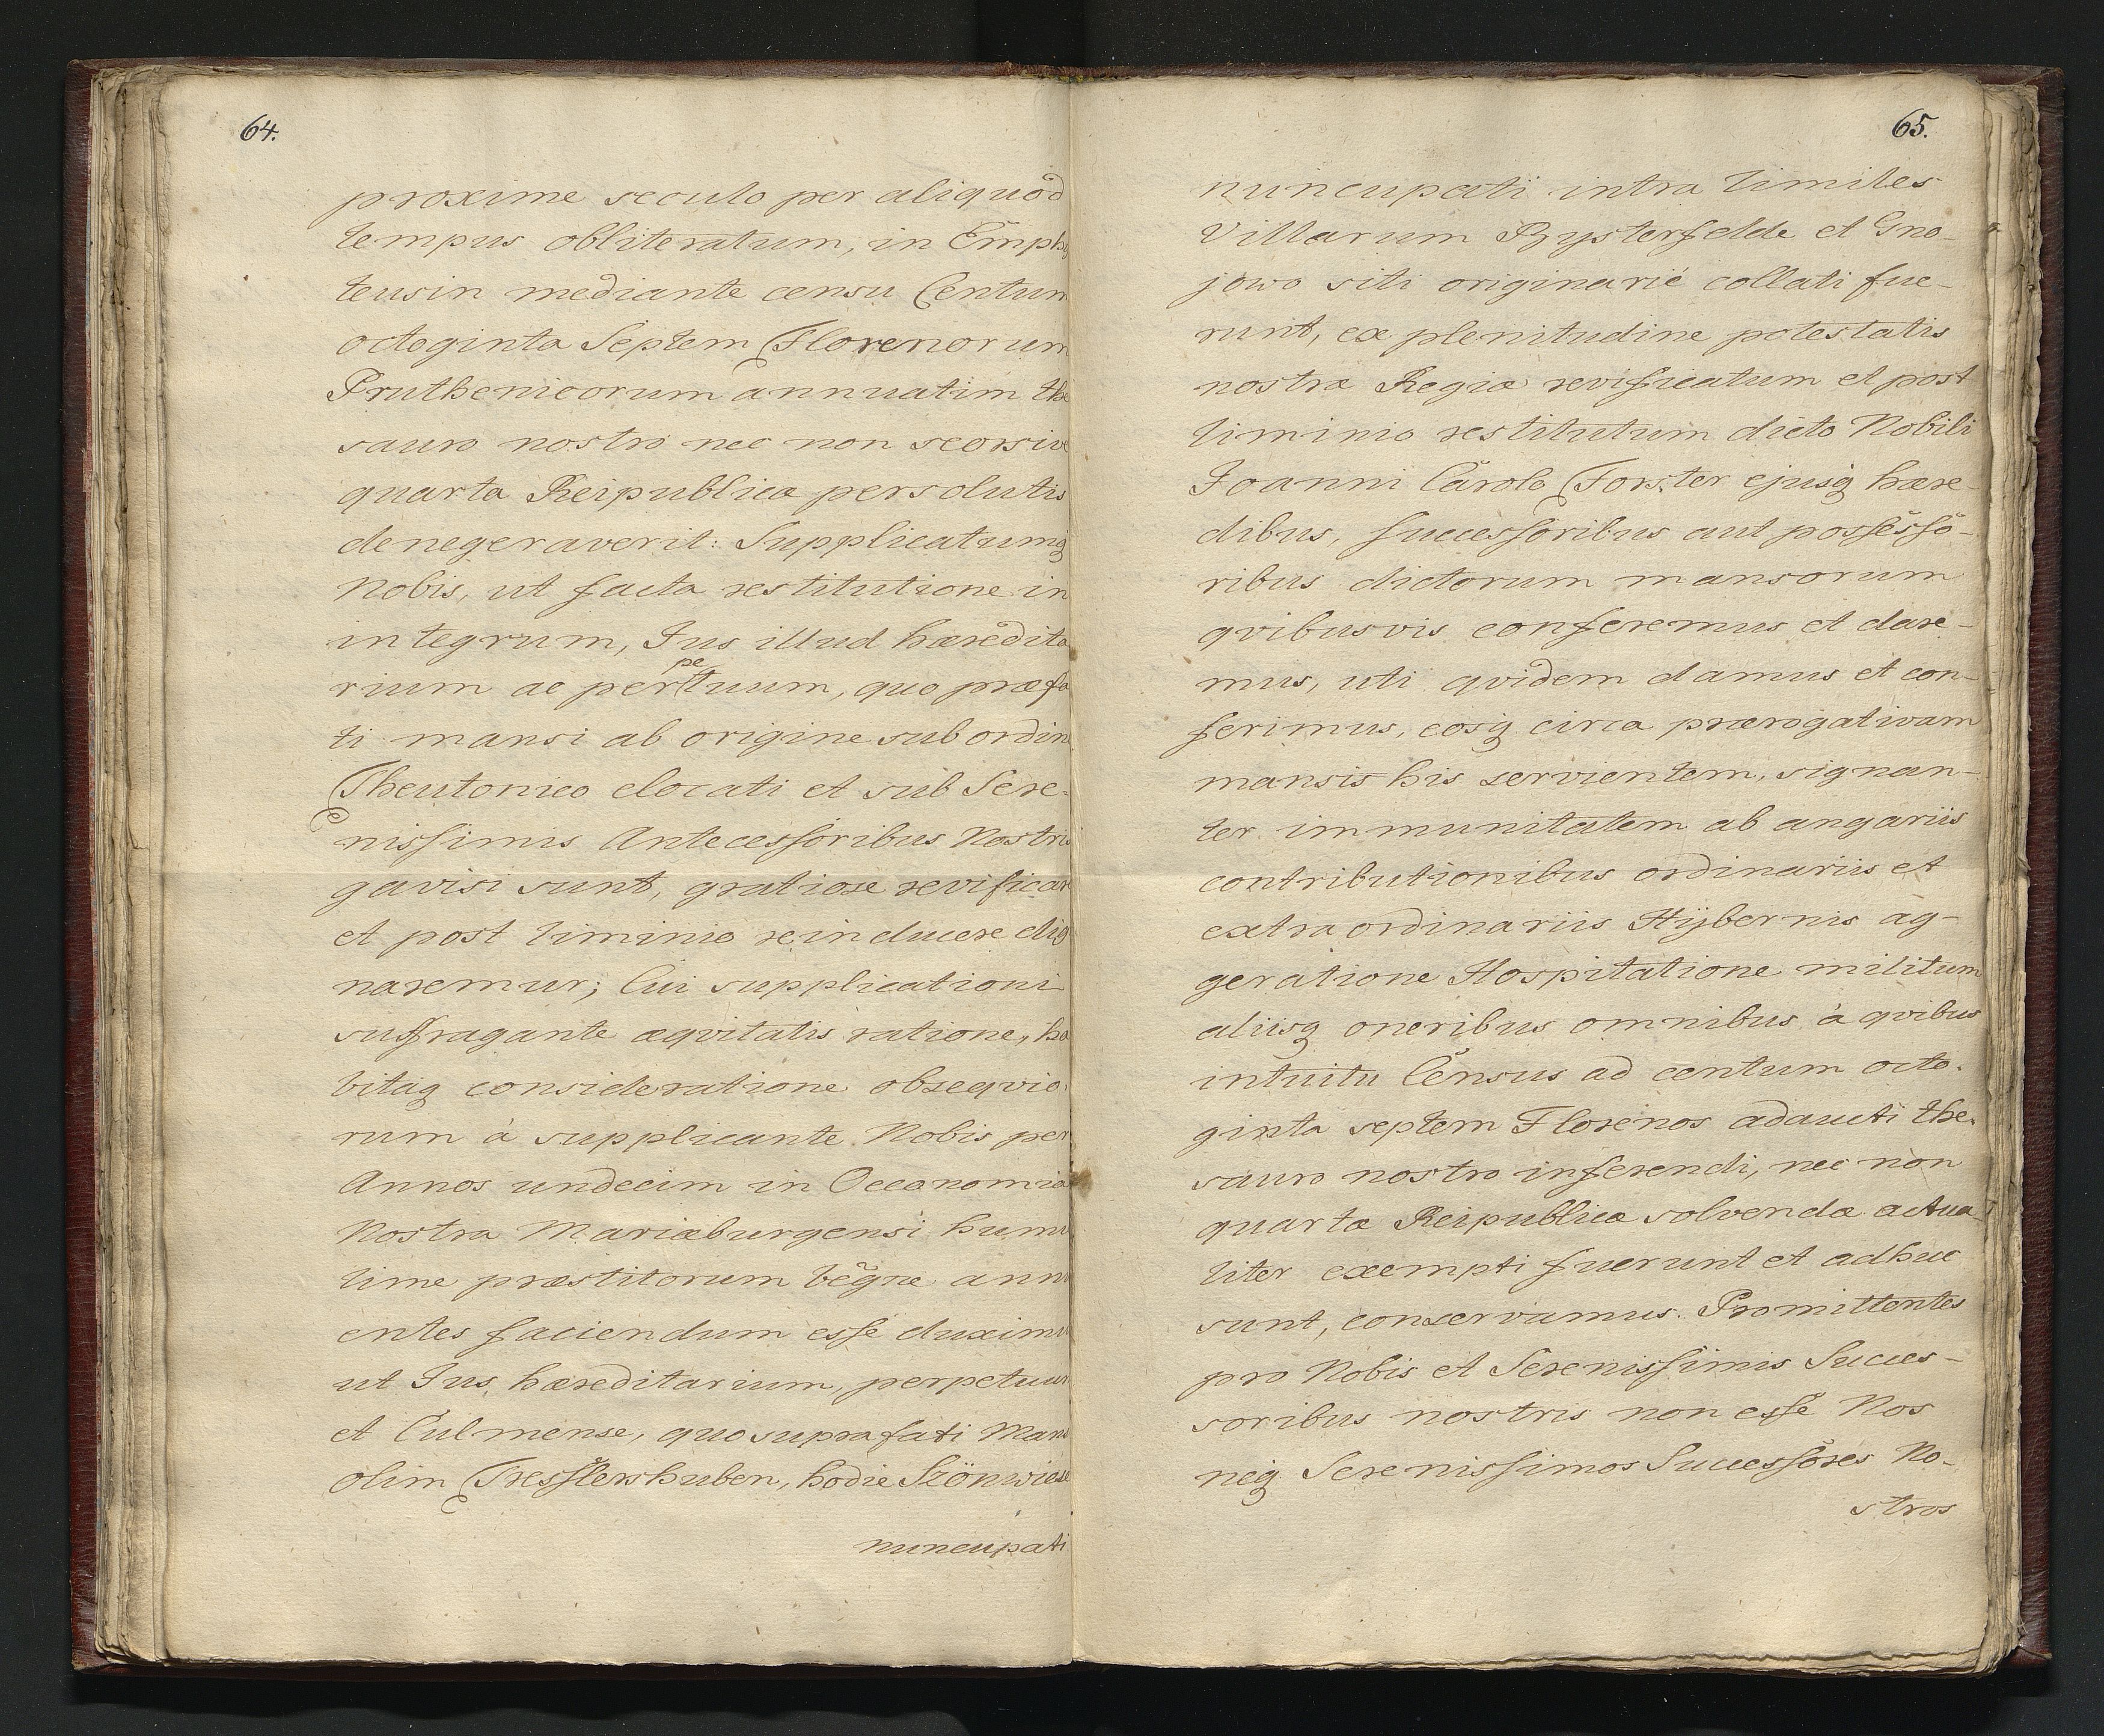 64.
proxime seculo per aliquod
tempus obliteratum, in Emphy
teusin mediante censu Centum
octoginta Septem Florenorum
Pruthenicorum annuatim the
sauro nostro nec non seorsive
quarta Reipublicæ persolutis
denegeraverit: Supplicatumq
Nobis, ut facta restitutione in
integrum, Jus illud hæredita
rium ac perpetuum, quo præfa
ti mansi ab origine sub ordine
Theutonico elocati et sub Sere-
nissimis Antecessoribus Nostris
gavisi sunt, gratiose revificare
et post liminio reinducere dig
naremur; Cui supplicationi
suffragante æqvitatis ratione, ha
bitaq consideratione obseqvio
rum à supplicante Nobis per
Annos undecim in Oeconomia
Nostra Mariæburgensi humil
lime præstitorum bẽgne annu
entes faciendum esse duximus
ut Jus hæreditarium, perpetuum
et Culmense, quo suprafati Mansi
olim Tresslershuben, hodie Szönwiese
nuncupati
65.
nuncupati intra limites
Villarum Bysterfelde et Gno-
jowo siti originariè collati fue-
runt, ex plenitudine potestatis
nostræ Regiæ revificatum et post
liminio restitutum dicto Nobili
Joanni Carolo Forster ejusq hære-
dibus, successoribus aut possesso-
ribus dictorum mansorum
qvibusvis conferemus et dare-
mus, uti qvidem damus et con-
ferimus, eosq circa prærogativam
mansis his servientem, signan-
ter immunitatem ab angariis
contributionibus ordinariis et
extraordinariis Hÿbernis ag-
geratione Hospitatione militum
aliisq oneribus omnibus à qvibus
intuitu Census ad centum octo-
ginta septem Florenos adaucti the-
sauro nostro inferendi, nec non
quartæ Reipublicæ solvendæ actua-
liter exempti fuerunt et adhuc
sunt, conservamus. Promittentes
pro Nobis et Serenissimis Succes-
soribus nostris non esse Nos
neq Serenissimos Successores No-
stros